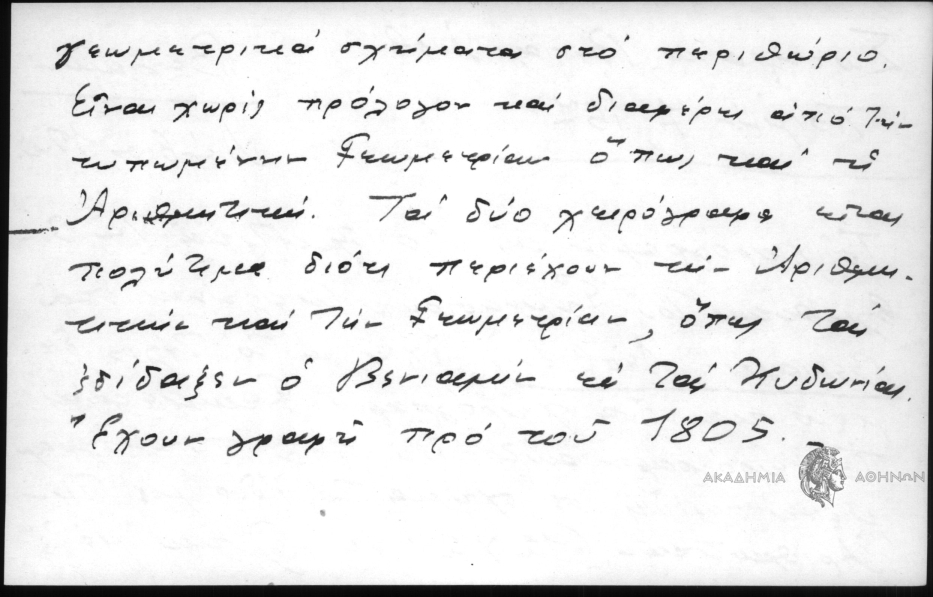 γεωμετρικά σχήματα στό περιθώριο.
Εἶναι χωρίς πρόλογον καί διαφέρει ἀπό τήν
τυπωμένην Γεωμετρίαν ὅπως καί ἡ
Ἀριθμητική. Τά δύο χειρόγραφα εἶναι
πολύτιμα διότι περιέχουν τήν Ἀριθμη-
τικήν καί τήν Γεωμετρίαν, ὅπως τάς
ἐδίδαξεν ὁ Βενιαμίν εἰς τάς Κυδωνίας.
Ἔχουν γραφῆ πρό τοῦ 1805.
ΑΚΑΔΗΜΙΑ ΑΘΗΝΩΝ